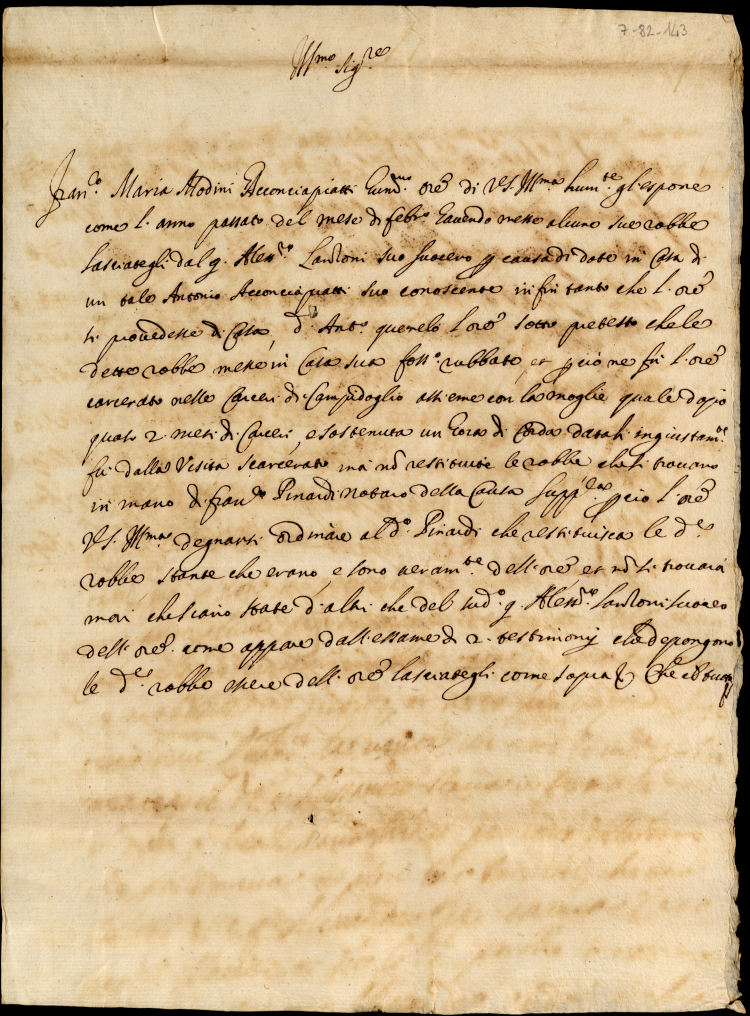 7-82-143
Ill.mo Sig.re
Fran.co Maria Modini Acconciapiatti hum.mo ore di V.S. Ill.ma hum.te gl'espone
come l'anno passato del mese di febr.o havendo messe alcune sue robbe
lasciategli dal q. Aless.ro Lanzoni suo suocero p causa di dote in Casa di
un tale Antonio Acconciapiatti suo conoscente infin tanto che l'ore
si provedesse di Casa, d.o Ant.o querelò l'ore sotto pretesto che le
dette robbe messe in Casa sua foss.o rubbate, et p ciò ne fù l'ore
carcerato nelle Carceri di Campidoglio assieme con la moglie quale dopo
quasi 2 mesi di Carceri, e sostenuta un hora di Corda datali ingiustam.te
fù dalla Visita scarcerato mà nō restituite le robbe che si trovano
in mano di Fran.co Pinardi Notaro della Causa supp.ca p ciò l'ore
V.S. Ill.ma degnarsi ordinare al d.o Pinardi che restituisca le d.e
robbe stante che erano, e sono veram.te dell'ore, et nō si trovarà
mai che siano state d'altri che del sud.o q. Aless.ro Lanzoni suocero
dell'ore come appare dall'essame di 2 testimonij che depongono
le d.e robbe essere dell'ore lasciategli come sopra Che